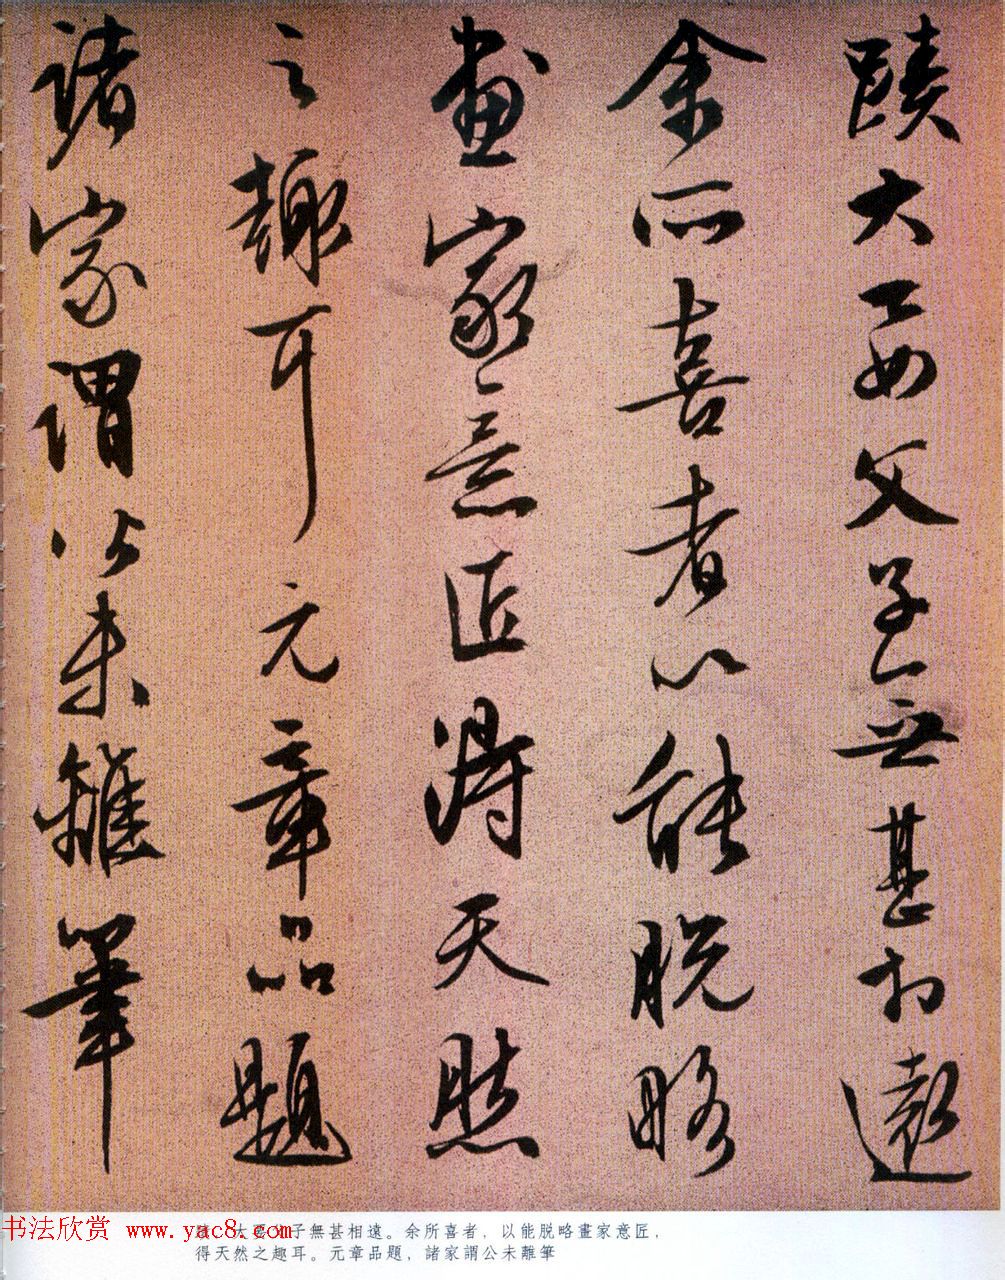 蹟大要父子無甚相遠
余所喜者以能脱略
畫家意匠得天然
之趣耳元章品題
諸家謂公未離筆
蹟，大要父子無甚相遠。余所喜者，以能脱略畫家意匠，
得天然之趣耳。元章品題，諸家謂公未離筆
书法欣赏 www.yac8.com